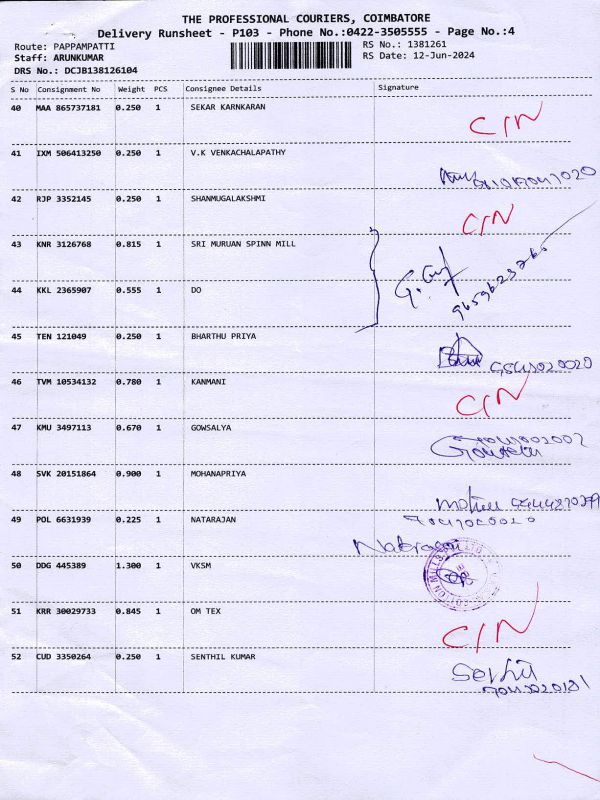 THE PROFESSIONAL COURIERS, COIMBATORE
Delivery Runsheet - P103 - Phone No.:0422-3505555 - Page No.:4
Route: PAPPAMPATTI
RS No.: 1381261
Staff: ARUNKUMAR
RS Date: 12-Jun-2024
DRS No.: DCJB138126104
S No Consignment No Weight PCS Consignee Details Signature
40 MAA 865737181 0.250 1 SEKAR KARNKARAN C/N
41 IXM 506413250 0.250 1 V.K VENKACHALAPATHY
42 RJP 3352145 0.250 1 SHANMUGALAKSHMI C/N
43 KNR 3126768 0.815 1 SRI MURUAN SPINN MILL
44 KKL 2365907 0.555 1 DO
45 TEN 121049 0.250 1 BHARTHU PRIYA
46 TVM 10534132 0.780 1 KANMANI C/N
47 KMU 3497113 0.670 1 GOWSALYA
48 SVK 20151864 0.900 1 MOHANAPRIYA
49 POL 6631939 0.225 1 NATARAJAN
50 DDG 445389 1.300 1 VKSM
51 KRR 30029733 0.845 1 OM TEX C/N
52 CUD 3350264 0.250 1 SENTHIL KUMAR